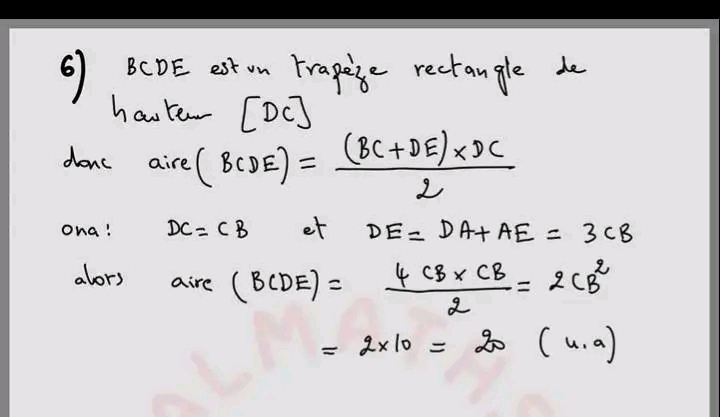 6) BCDE est un trapèze rectangle de
hauteur [DC]
donc aire(BCDE) = (BC+DE)×DC / 2
ona: DC = CB et DE = DA + AE = 3CB
alors aire (BCDE) = 4 CB × CB / 2 = 2CB²
= 2×10 = 20 (u.a)
ALMATH